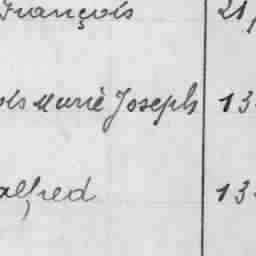 François 21,
ois Marie Joseph 13
alfred 13